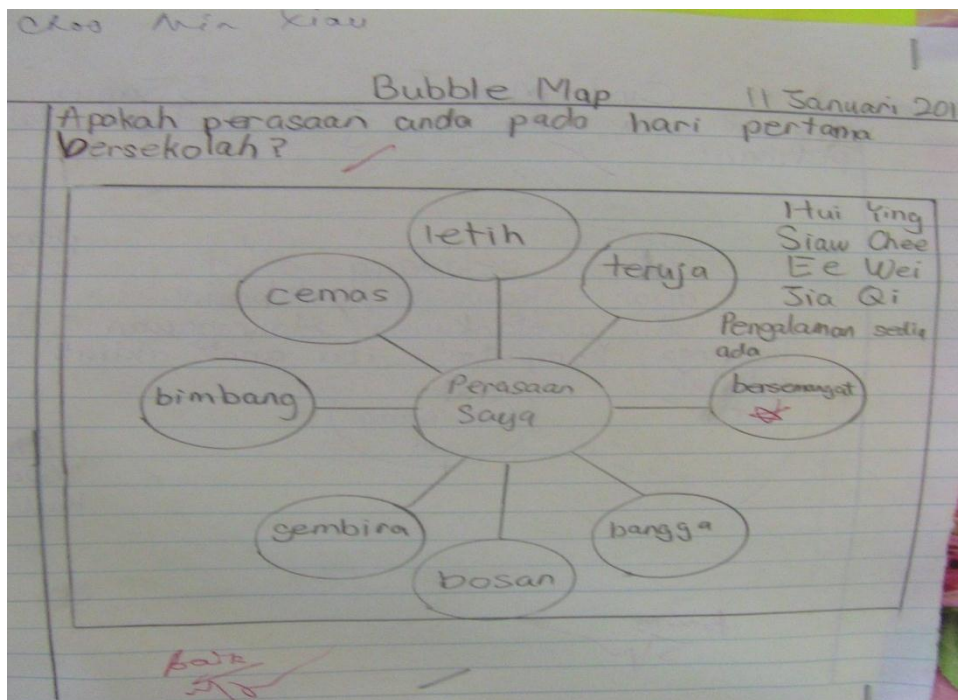 Choo Min Xiau
Bubble Map
11 Januari 201
Apakah perasaan anda pada hari pertama
bersekolah?
Hui Ying
Siaw Chee
Ee Wei
Jia Qi
Pengalaman sedia
ada
letih
teruja
cemas
bersemangat
Perasaan
Saya
bimbang
gembira
bangga
bosan
Baik